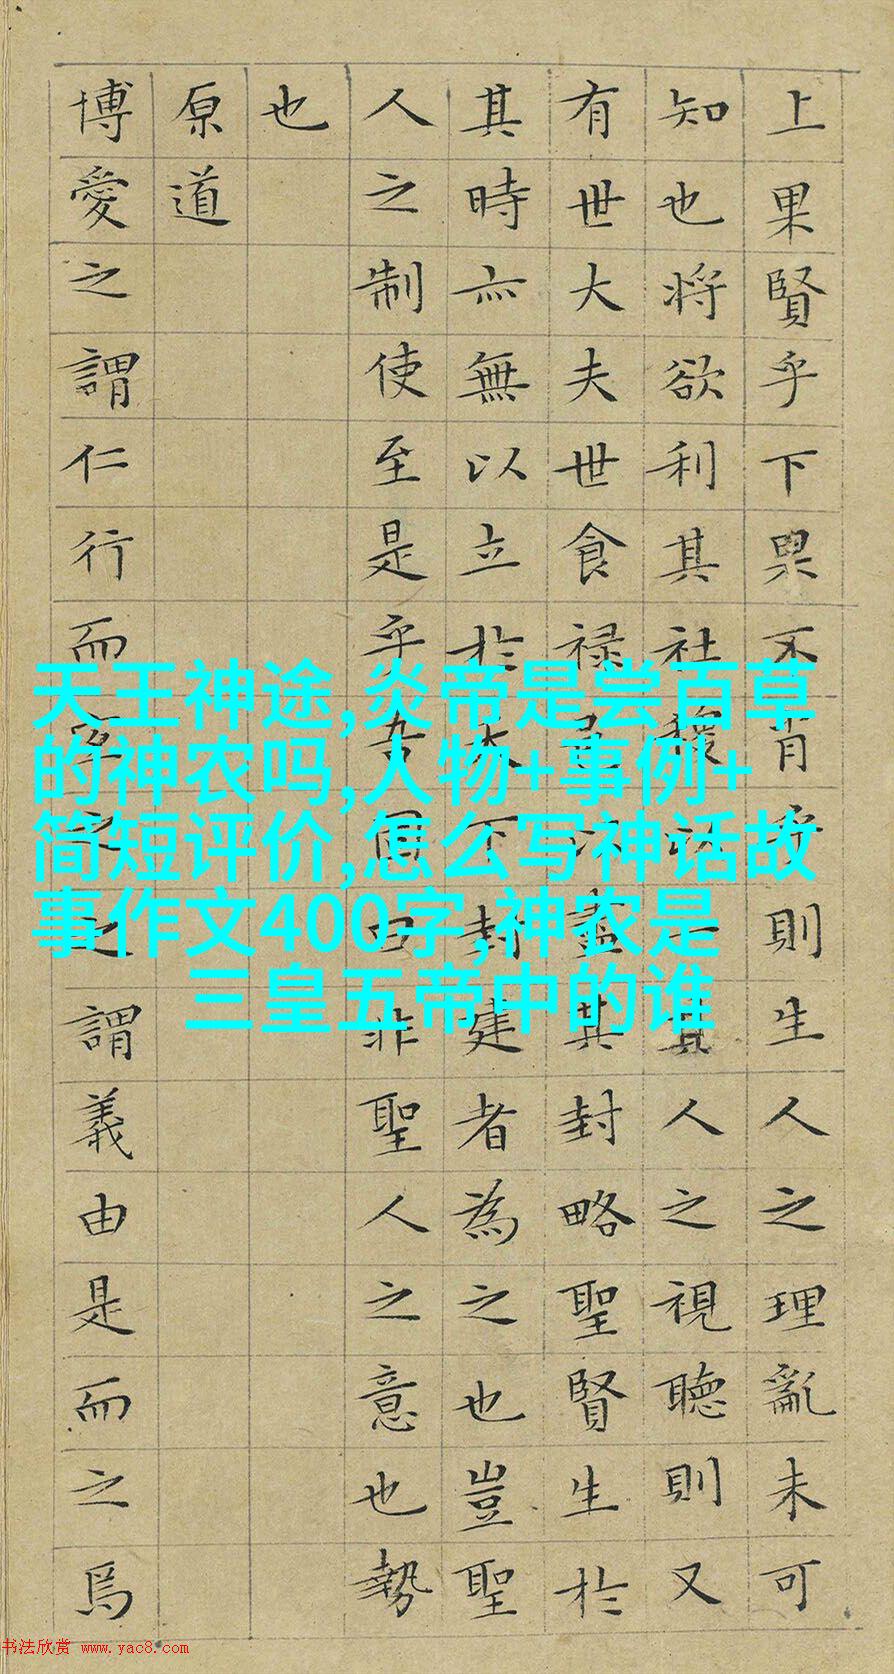 上果賢乎下果不肖乎則生人之理亂未可
知也將欲利其社稷以一其人之視聽則又
有世大夫世食祿邑以盡其封略聖賢生於
其時亦無以立於天下封建者為之也豈聖
人之制使至是乎吾固曰非聖人之意也勢
也
原道
博愛之謂仁行而宜之之謂義由是而之焉
天王神途,炎帝是尝百草
的神农吗,人物+事例+
简短评价,怎么写神话故
事作文400字,神农是
三皇五帝中的谁
书法欣赏 www.yac8.com